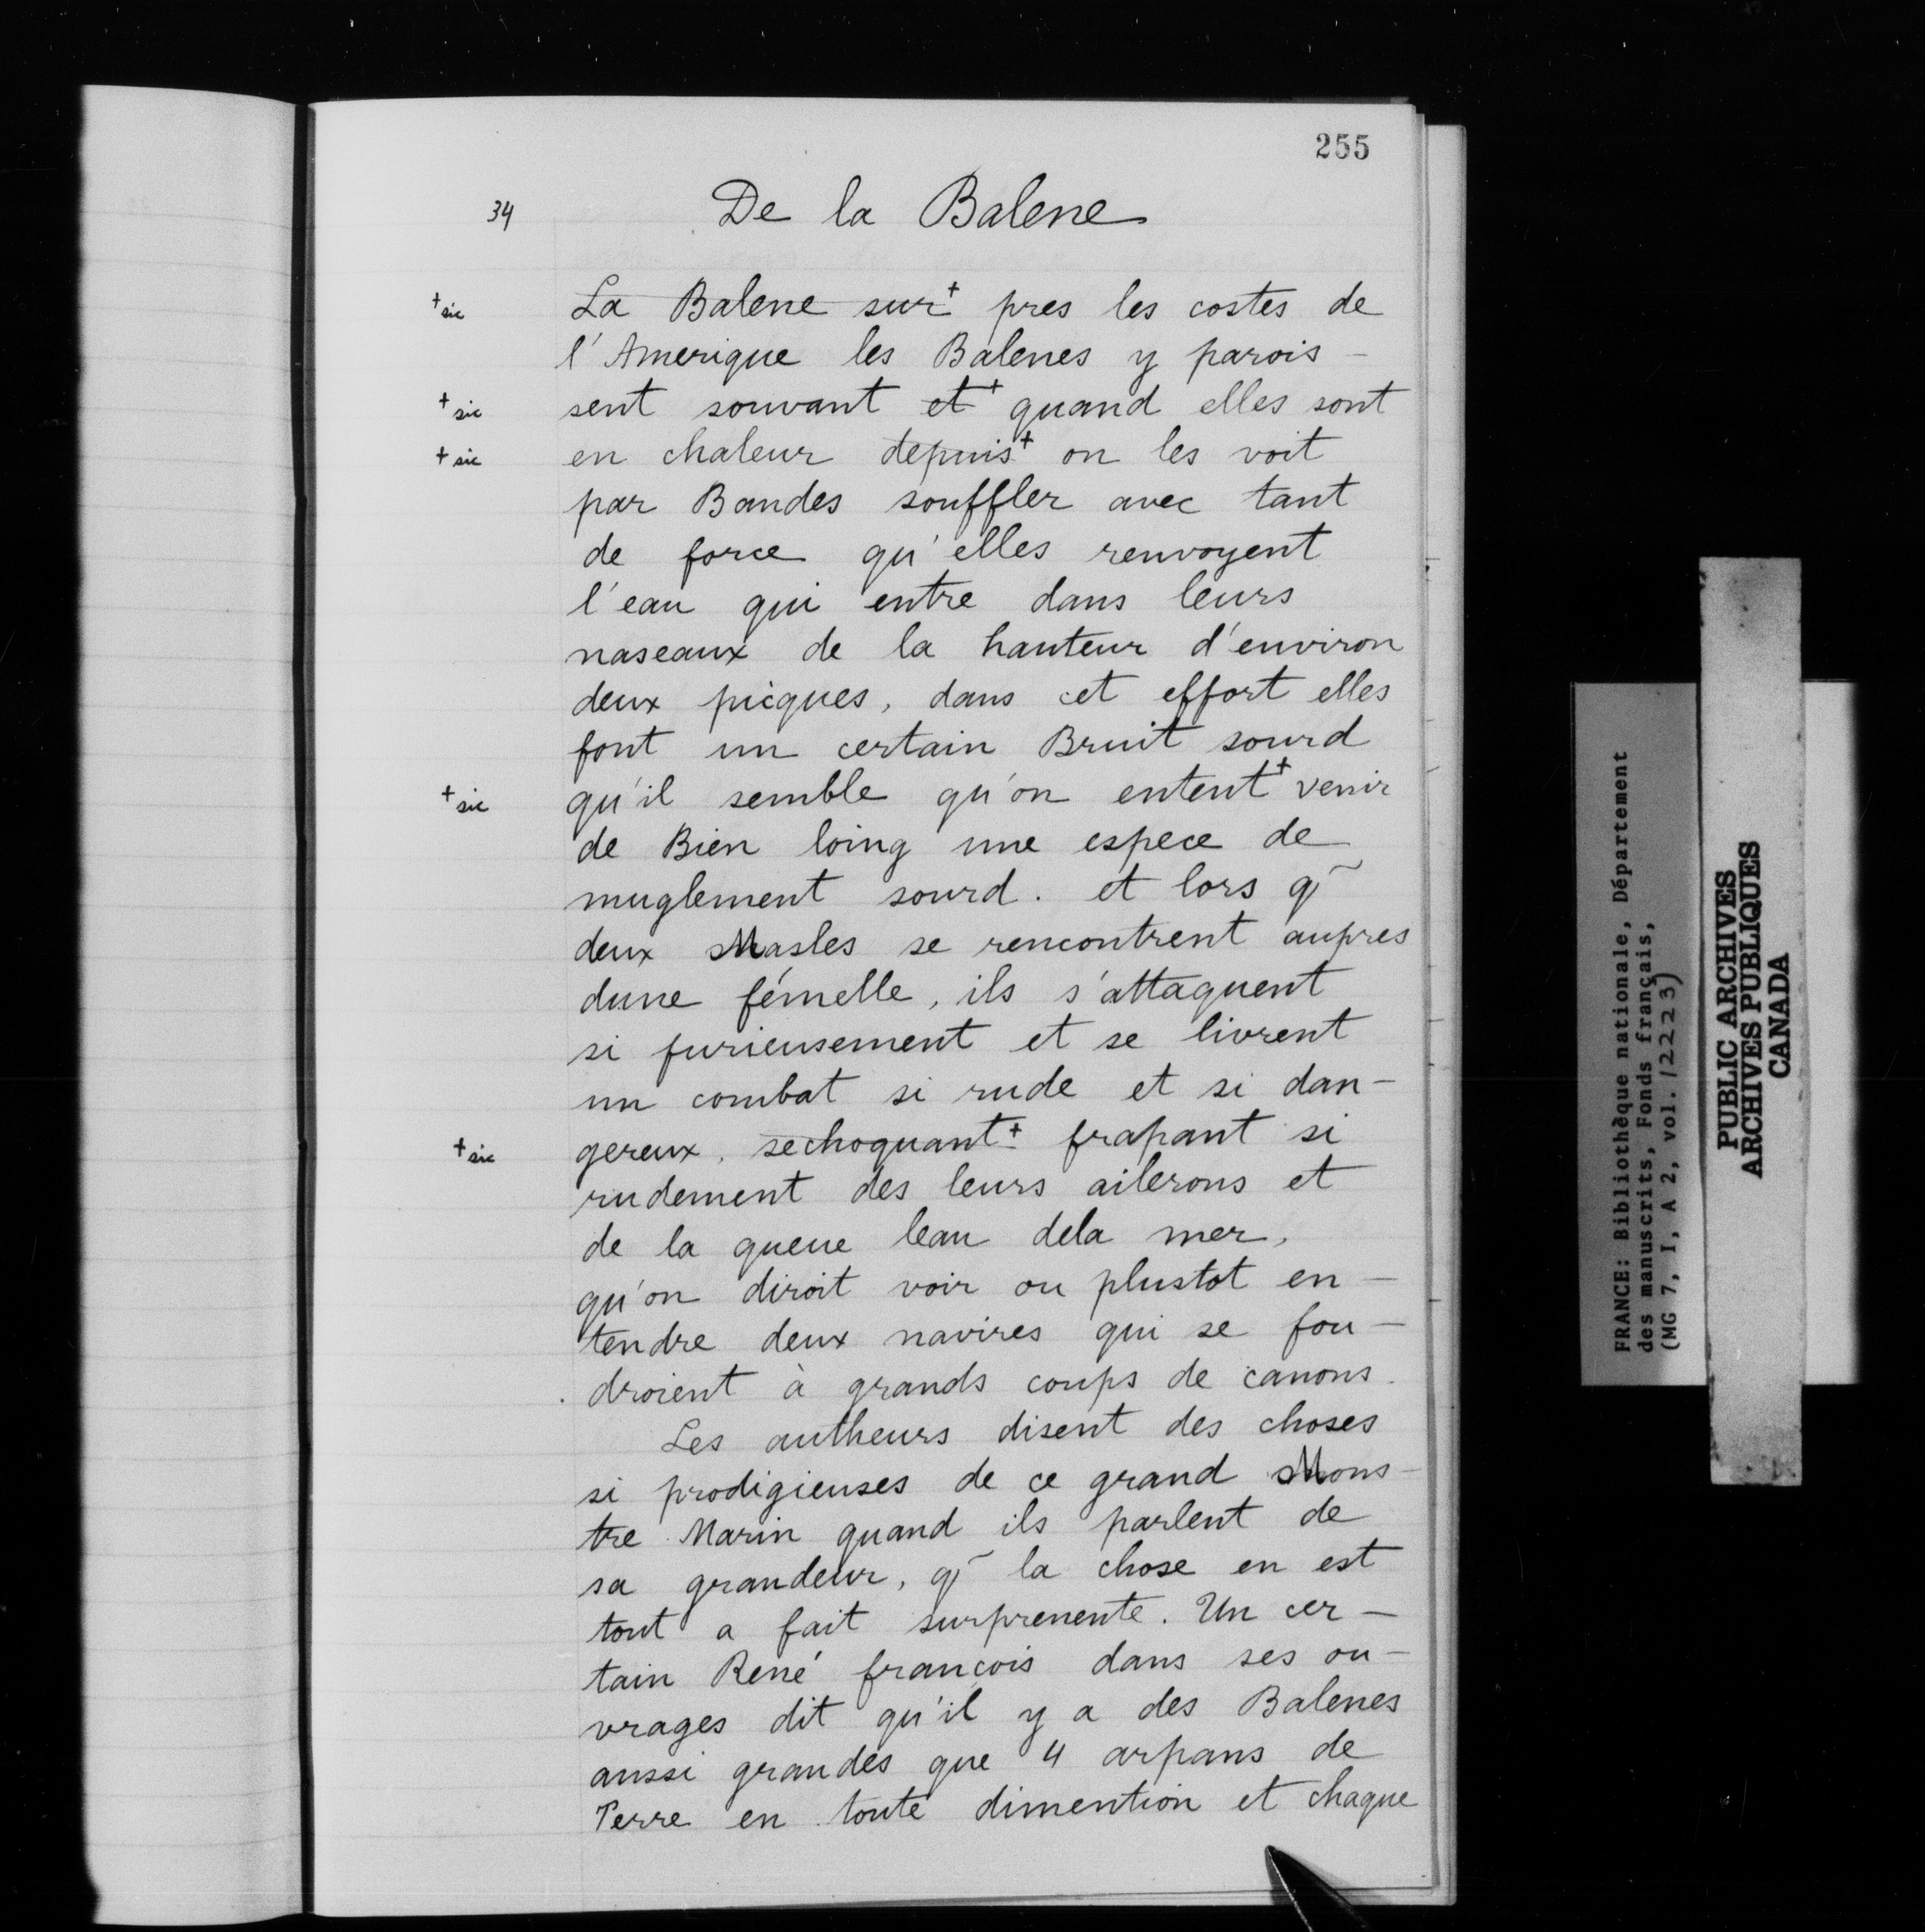 255
34
De la Balene
+ sic
La Balene sur+ pres les costes de
l'Amerique les Balenes y parois-
+ sic
sent souvant et+ quand elles sont
+ sic
en chaleur depuis+ on les voit
par Bandes souffler avec tant
de force qu'elles renvoyent
l'eau qui entre dans leurs
naseaux de la hauteur d'environ
deux picques, dans cet effort elles
font un certain Bruit sourd
+ sic
qu'il semble qu'on entent+ venir
de Bien loing une espece de
muglement sourd. et lors q̃
deux Masles se rencontrent aupres
dune fémelle, ils s'attaquent
si furieusement et se livrent
un combat si rude et si dan-
+ sic
gereux, sechoquant+ frapant si
rudement des leurs ailerons et
de la queue leau dela mer,
qu'on diroit voir ou plustot en-
tendre deux navires qui se fou-
droient à grands coups de canons.
Les autheurs disent des choses
si prodigieuses de ce grand Mons-
tre Marin quand ils parlent de
sa grandeur, q̃ la chose en est
tout a fait surprenente. Un cer-
tain René françois dans ses ou-
vrages dit qu'il y a des Balenes
aussi grandes que 4 arpans de
Terre en toute dimention et chaque
FRANCE: Bibliothèque nationale, Département
des manuscrits, Fonds français,
(MG 7, I, A 2, vol. 12223)
PUBLIC ARCHIVES
ARCHIVES PUBLIQUES
CANADA